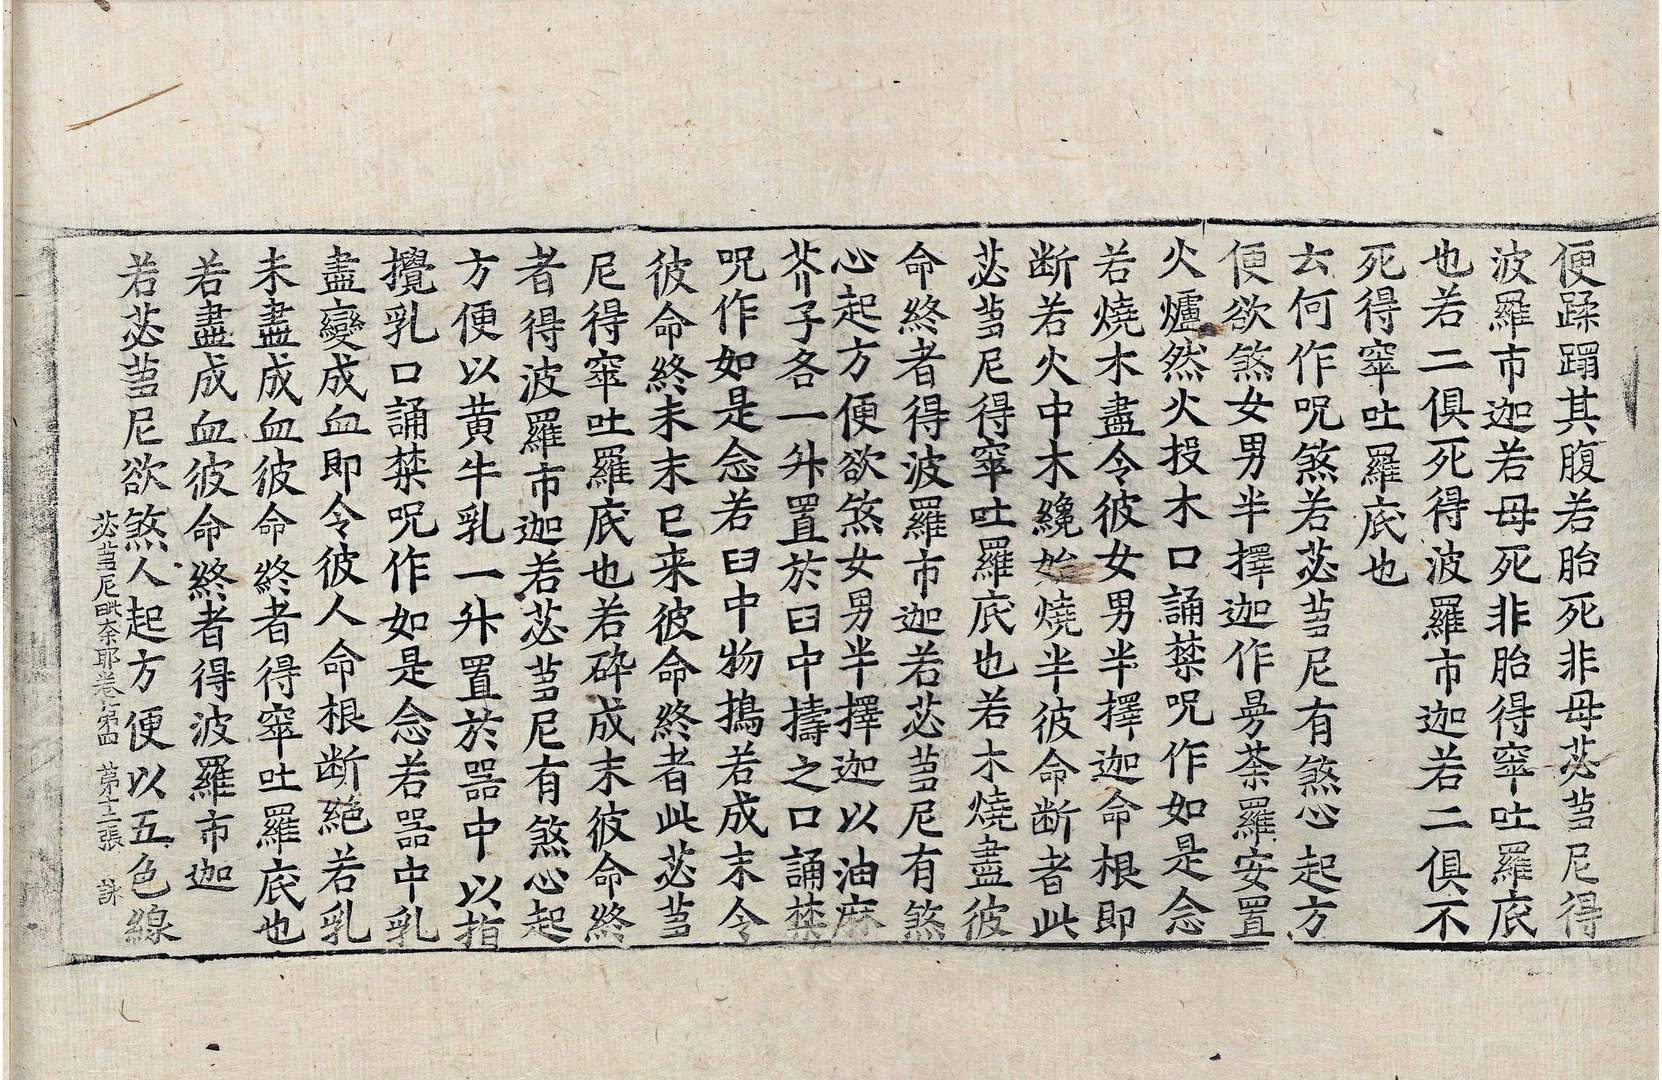 便蹂蹋其腹若胎死非母苾蒭尼得
波羅市迦若母死非胎得窣吐羅底
也若二俱死得波羅市迦若二俱不
死得窣吐羅底也
云何作呪煞若苾蒭尼有煞心起方
便欲煞女男半擇迦作曼荼羅安置
火爐然火投木口誦禁呪作如是念
若燒木盡令彼女男半擇迦命根即
断若火中木纔始燒半彼命断者此
苾蒭尼得窣吐羅底也若木燒盡彼
命終者得波羅市迦若苾蒭尼有煞
心起方便欲煞女男半擇迦以油麻
芥子各一升置於臼中擣之口誦禁
呪作如是念若臼中物搗若成末令
彼命終未末已来彼命終者此苾蒭
尼得窣吐羅底也若碎成末彼命終
者得波羅市迦若苾蒭尼有煞心起
方便以黄牛乳一升置於器中以指
攪乳口誦禁呪作如是念若器中乳
盡變成血即令彼人命根断絕若乳
未盡成血彼命終者得窣吐羅底也
若盡成血彼命終者得波羅市迦
若苾蒭尼欲煞人起方便以五色線
苾蒭尼毗奈耶卷第四 第十二張 詠